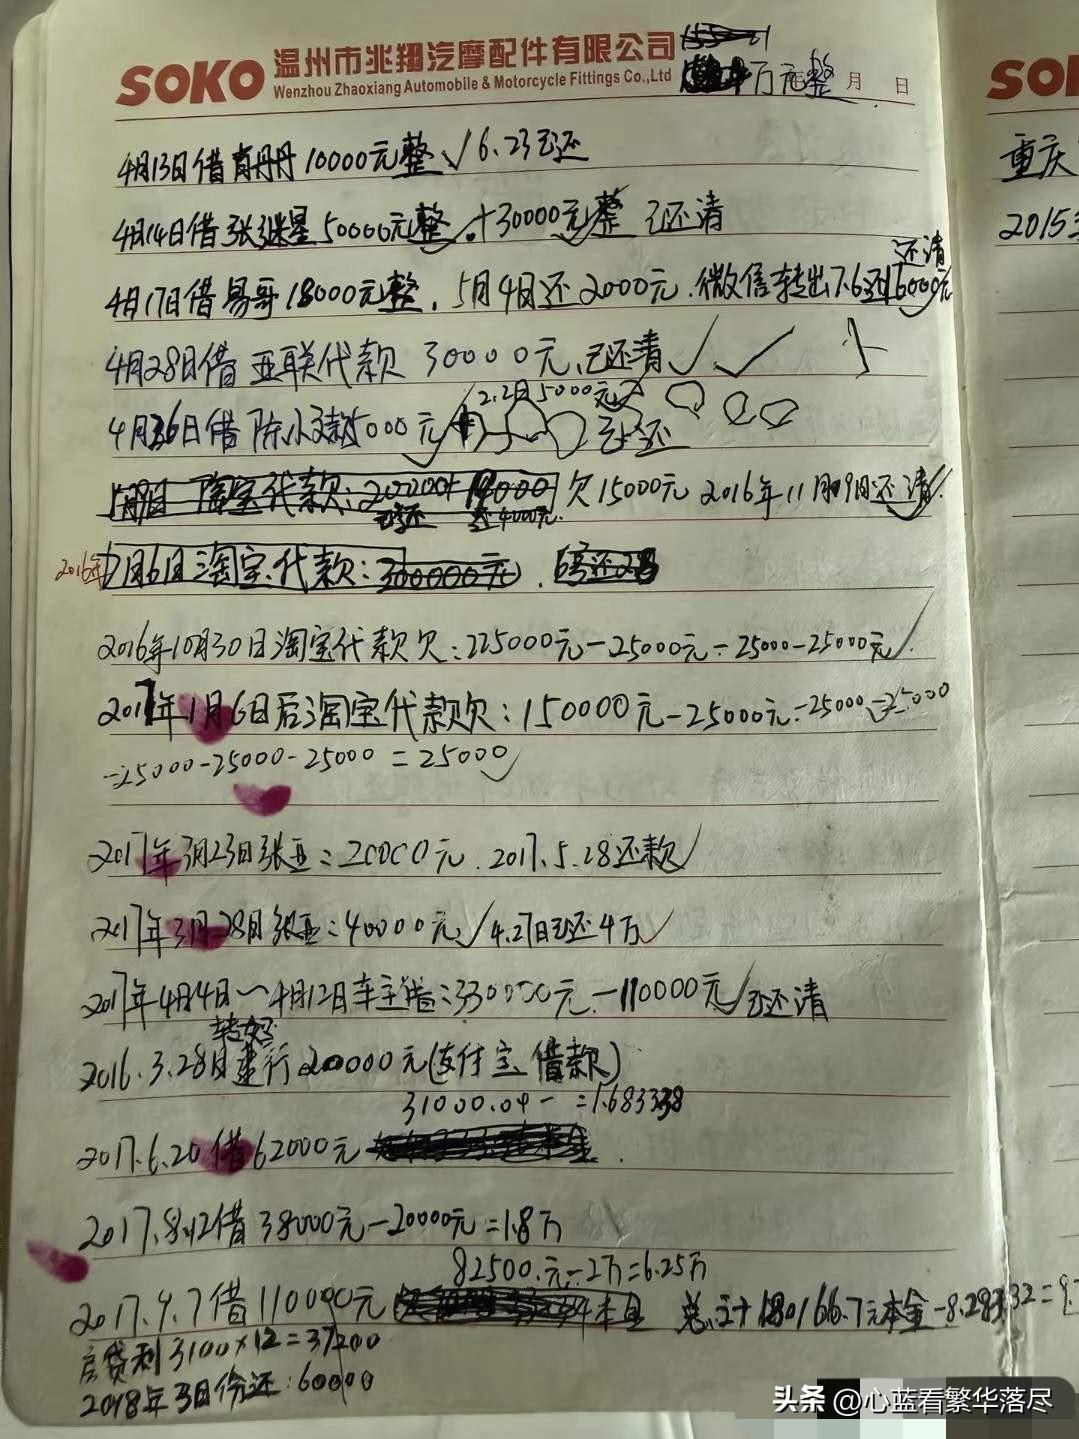 SOKO 温州市兆翔汽摩配件有限公司
Wenzhou Zhaoxiang Automobile & Motorcycle Fittings Co.,Ltd
万元整 月 日
4月13日借肖丹丹10000元整√6.23已还
4月14日借张继星50000元整√+30000元整 已还清
还清
4月17日借易哥18000元整,5月4日还2000元.微信转出7.6还16000元
4月28日借亚联代款30000元,已还清√√
2.2日5000元
4月26日借陈小 5000元 已还
淘宝代款:200000 欠15000元 2016年11月09日还清
已还 还4000元.
2016年7月6日淘宝代款:300000元.
2016年10月30日淘宝代款欠:225000元-25000元-25000-25000元√
2017年1月6日后淘宝代款欠:150000元-25000元-25000-25000
-25000-25000-25000=25000√
2017年3月23日张亚:20000元.2017.5.28还款√
2017年3月28日张亚:40000元√4.27日已还4万√
2017年4月4日~4月12日车主借:330000元-110000元√已还清
转好
2016.3.28日建行200000元(支付宝借款)
31000.04- =1.683338
2017.6.20借62000元
2017.8.12借38000元-20000元=1.8万
82500.元-2万=6.25万
2017.9.7借110000元 本金 总计180166.7元本金-8.28332=9.
房贷利3100×12=37200
2018年3月份还:60000
SO
重庆
2015
头条 @心蓝看繁华落尽